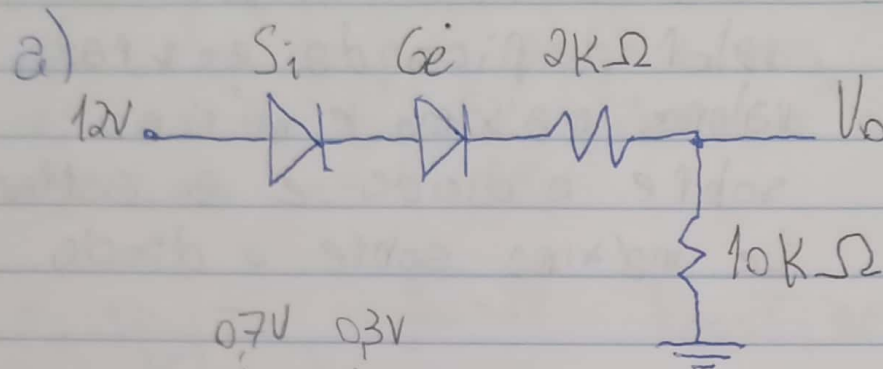 a)
Si Ge 2KΩ
12V Vo
10KΩ
0,7V 0,3V